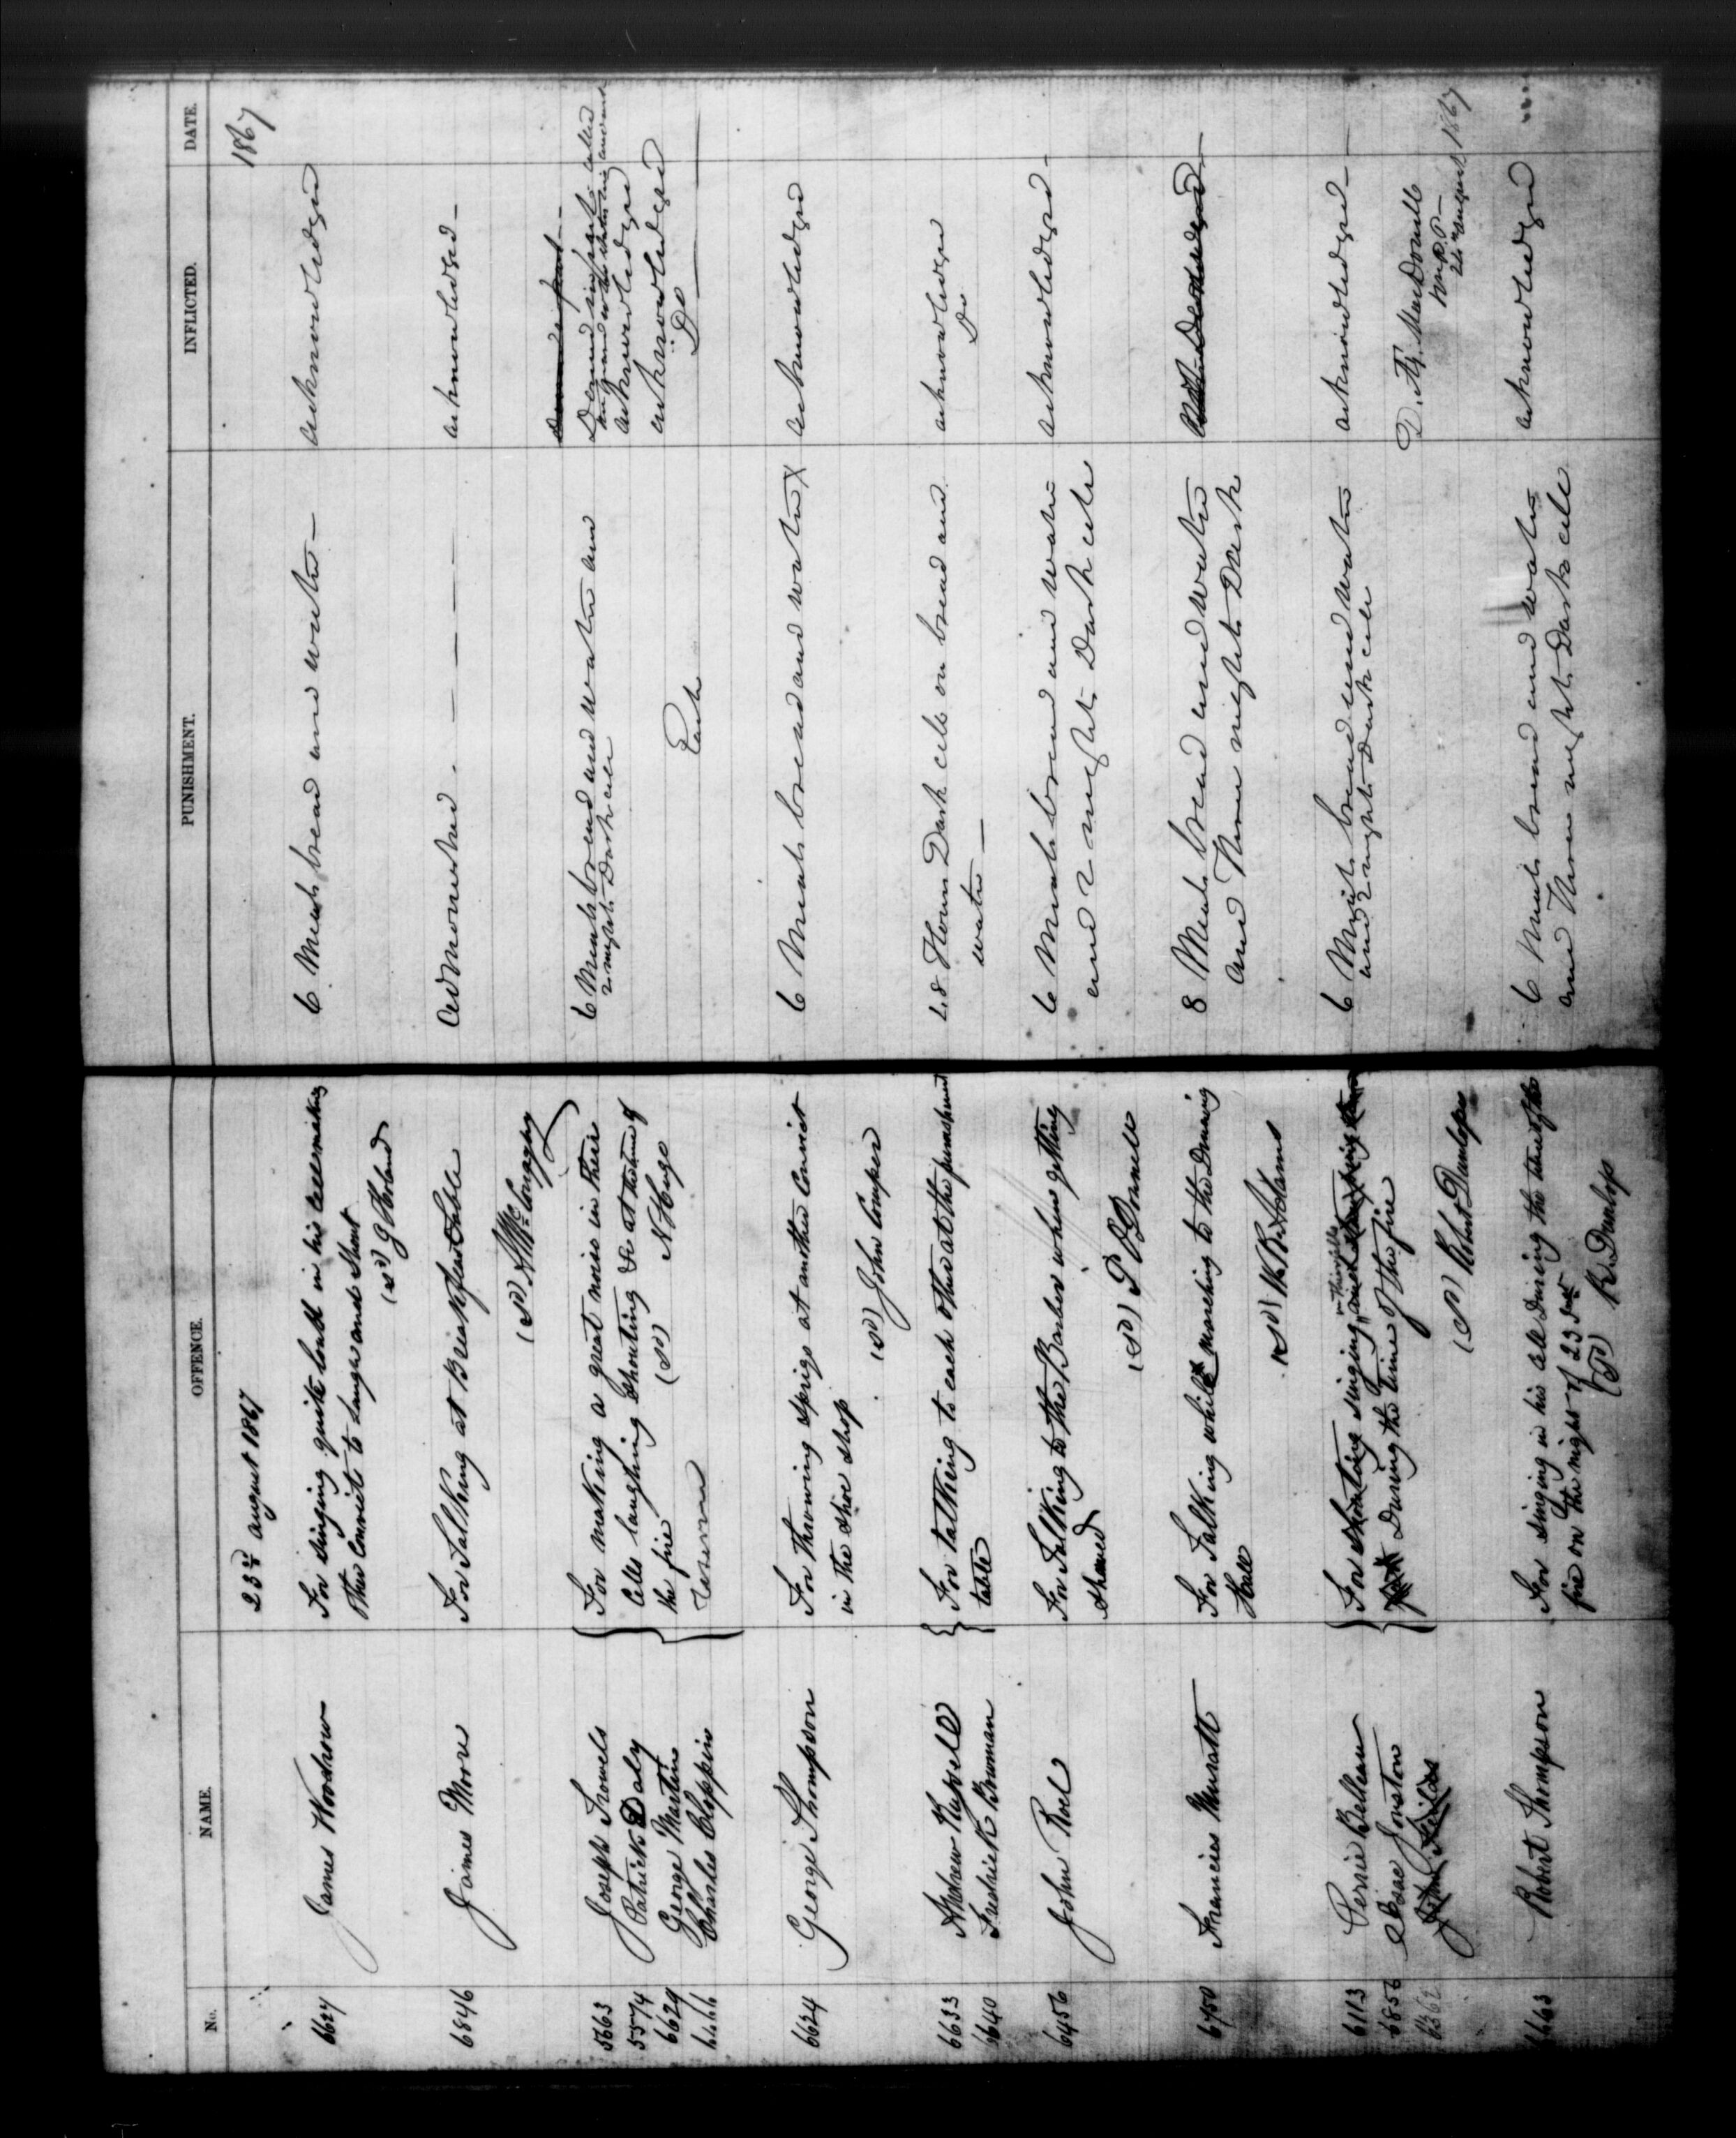 No. NAME. OFFENCE. PUNISHMENT. INFLICTED. DATE.
23rd august 1867
1867
6627 James Woodrow For singing quite loud in his cell making 6 Meals bread and water — acknowledged
other Convicts to laugh and Shout
(sd) J Holland
6846 James Moore For Talking at Breakfast Table Admonished acknowledged —
(sd)
5663 Joseph Trowels For making a great noise in their 6 Meals bread and water and
5574 Patrick Daly Cells laughing Shouting &c at the time of 2 nights Dark cell acknowledged
6629 George Martin the fire (sd) N Hugo acknowledged
Charles Choppin Each Do
6624 George Thompson For throwing sprigs at another Convict 6 Meals bread and water X acknowledged
in the shoe shop
(sd) John Cooper
6633 Andrew Russell For talking to each other at the punishment 48 Hours Dark cell on bread and acknowledged
6640 Fredrick Bowman table water — Do
6456 John Roel For Talking to the Barber when getting 6 Meals bread and water acknowledged —
shaved and 2 nights Dark cell
(sd) P O'Donnell
6750 Francis Muratt For Talking while marching to the Dining 8 Meals bread and water
Hall and Three nights Dark
(sd) W. B. Adams
6113 Perrie Belleau For shouting singing in their cells 6 Meals bread and water acknowledged —
6856 Isaac Jonston During the time of the fire and 2 nights Dark cell
6362 John Fields
(sd) Robert Dunlop
D. Æ. MacDonell
24 August 1867
Robert Thompson For singing in his cell During the time of the 6 Meals bread and water acknowledged
fire on the night of 23 Inst and Three nights Dark cell
(sd) R. Dunlop